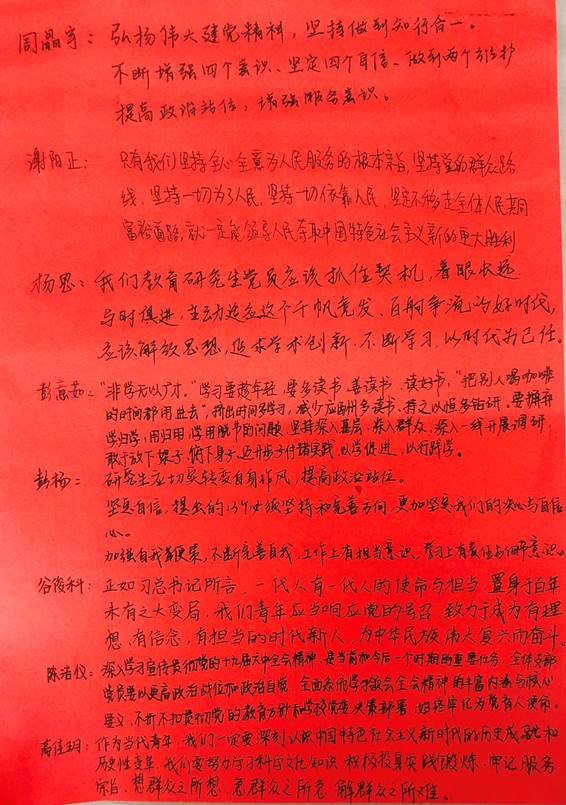 周晶宇：弘扬伟大建党精神，坚持做到知行合一。
不断增强四个意识、坚定四个自信、做到两个维护
提高政治站位，增强服务意识。
谢阳正：只有我们坚持全心全意为人民服务的根本宗旨，坚持党的群众路
线，坚持一切为了人民，坚持一切依靠人民，坚定不移走全体人民共同
富裕道路，就一定能领导人民夺取中国特色社会主义新的更大胜利
杨思：我们教育研究生党员应该抓住契机，着眼长远
与时俱进，主动适应这个千帆竞发、百舸争流的好时代，
应该解放思想，追求学术创新，不断学习，以时代为己任。
彭 茹："非学无以广才。"学习要趁年轻，要多读书、善读书、读好书，"把别人喝咖啡
的时间都用进去"，挤出时间多学习，减少应酬多读书、持之以恒多钻研。要摒弃
学归学，用归用，学用脱节的问题，坚持深入基层、深入群众、深入一线开展调研
敢于放下架子、俯下身子、迈开步子付诸实践，以学促进，以行践学。
彭杨：研究生应切实转变自身作风，提高政治站位。
坚定自信，提出的13个 坚持和完善方向，更加坚定我们的决心与自信
心。
加强自我 ，不断完善自我，工作上有担当意识、学习上有责任与 意识。
谷 科：正如习总书记所言，一代人有一代人的使命与担当，置身于百年
未有之大变局，我们青年应当响应党的号召，致力于成为有理
想、有信念、有担当的时代新人，为中华民族伟大复兴而奋斗。
陈洁仪：深入学习宣传贯彻党的十九届六中全会精神，是当前和今后一个时期的重要任务，全体支部
党员要以更高政治站位和政治自觉，全面系统学习领会全会精神的丰富内涵与核心
要义，不折不扣贯彻党的教育方针和学校党委决策部署，始终牢记为党育人使命。
高佳玥：作为当代青年，我们一定要深刻认识中国特色社会主义新时代的历史成就和
历史性变革，我们要努力学习科学文化知识，积极投身实践锻炼，牢记服务
宗旨，想群众之所想，急群众之所急，解群众之所难。